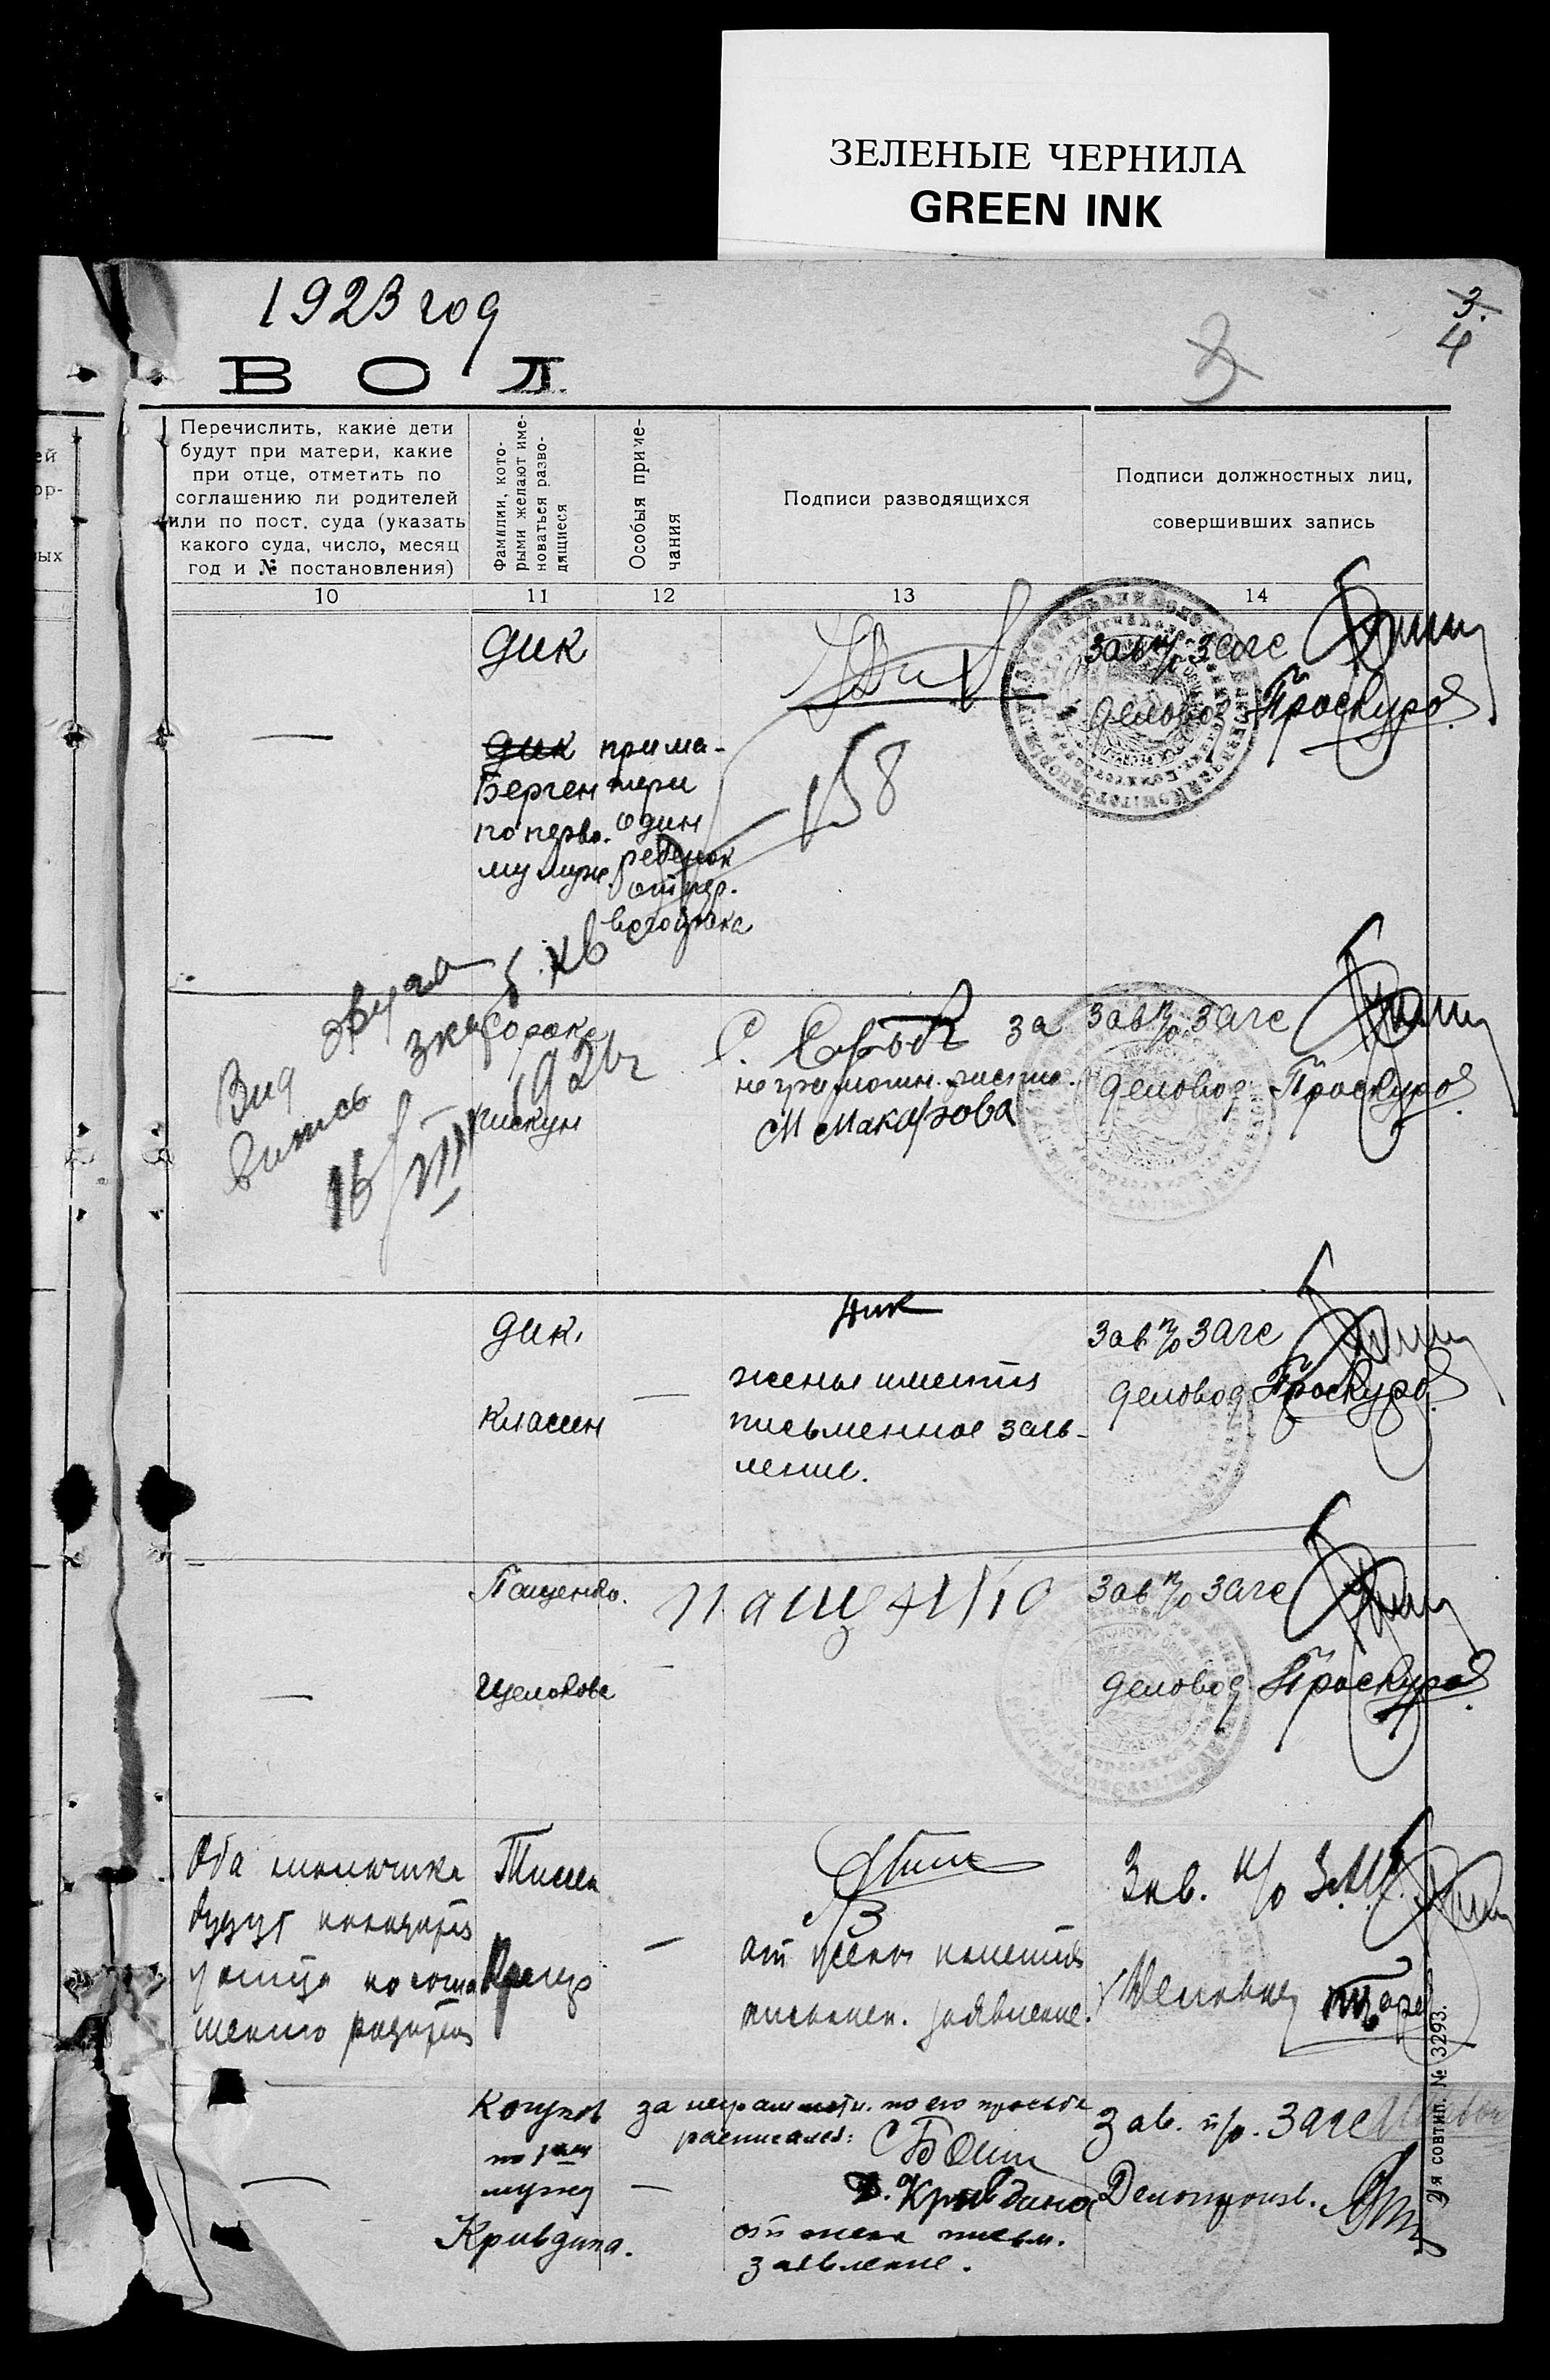 ЗЕЛЕНЫЕ ЧЕРНИЛА
GREEN INK
1923 год
3.
4
3
ВОД
Перечислить, какие дети
будут при матери, какие
при отце, отметить по
соглашению ли родителей
или по пост. суда (указать
какого суда, число, месяц
год и № постановления)
Фамилии, кото-
рыми желают име-
новаться разво-
дящиеся
Особыя приме-
чания
Подписи разводящихся
Подписи должностных лиц,
совершивших запись
10
11
12
13
14
Дик
Дик
Берген
по перво-
му муж.
при ма-
тери
один
ребенок
от пер-
вого брака
158
Зав п/о загс
Деловод Проскуро
Сорока
Пискун
16/VIII 1926 г
С. за
неграмотн. распис.
М Макарова
Зав п/о загс
Деловод Проскуро
Дик.
Классен
Дик
жены имеется
письменное заяв-
ление.
Зав п/о загс
Деловод Проскуро
Пащенко.
Щелокова
Пащенко
Зав п/о загс
Деловод Проскуро
Оба мальчика
будут находится
у отца по согла
шению родител
Тиссен
от жены имеется
письмен. заявление.
Зав. п/о
Деловод
Когунов
по
мужу
Кривдина.
за неграмотн. по его просьбе
расписался:
Кривдина
от жены письм.
заявление.
Зав. п/о. Загс
Делопроизв.
2-я совтип. № 3293.